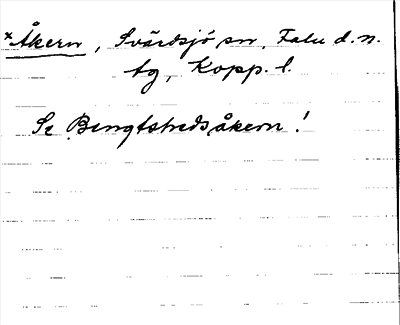 ×Åkern, Svärdsjö sn, Falu d. n.
tg, Kopp. l.
Se Bengtshedsåkern!